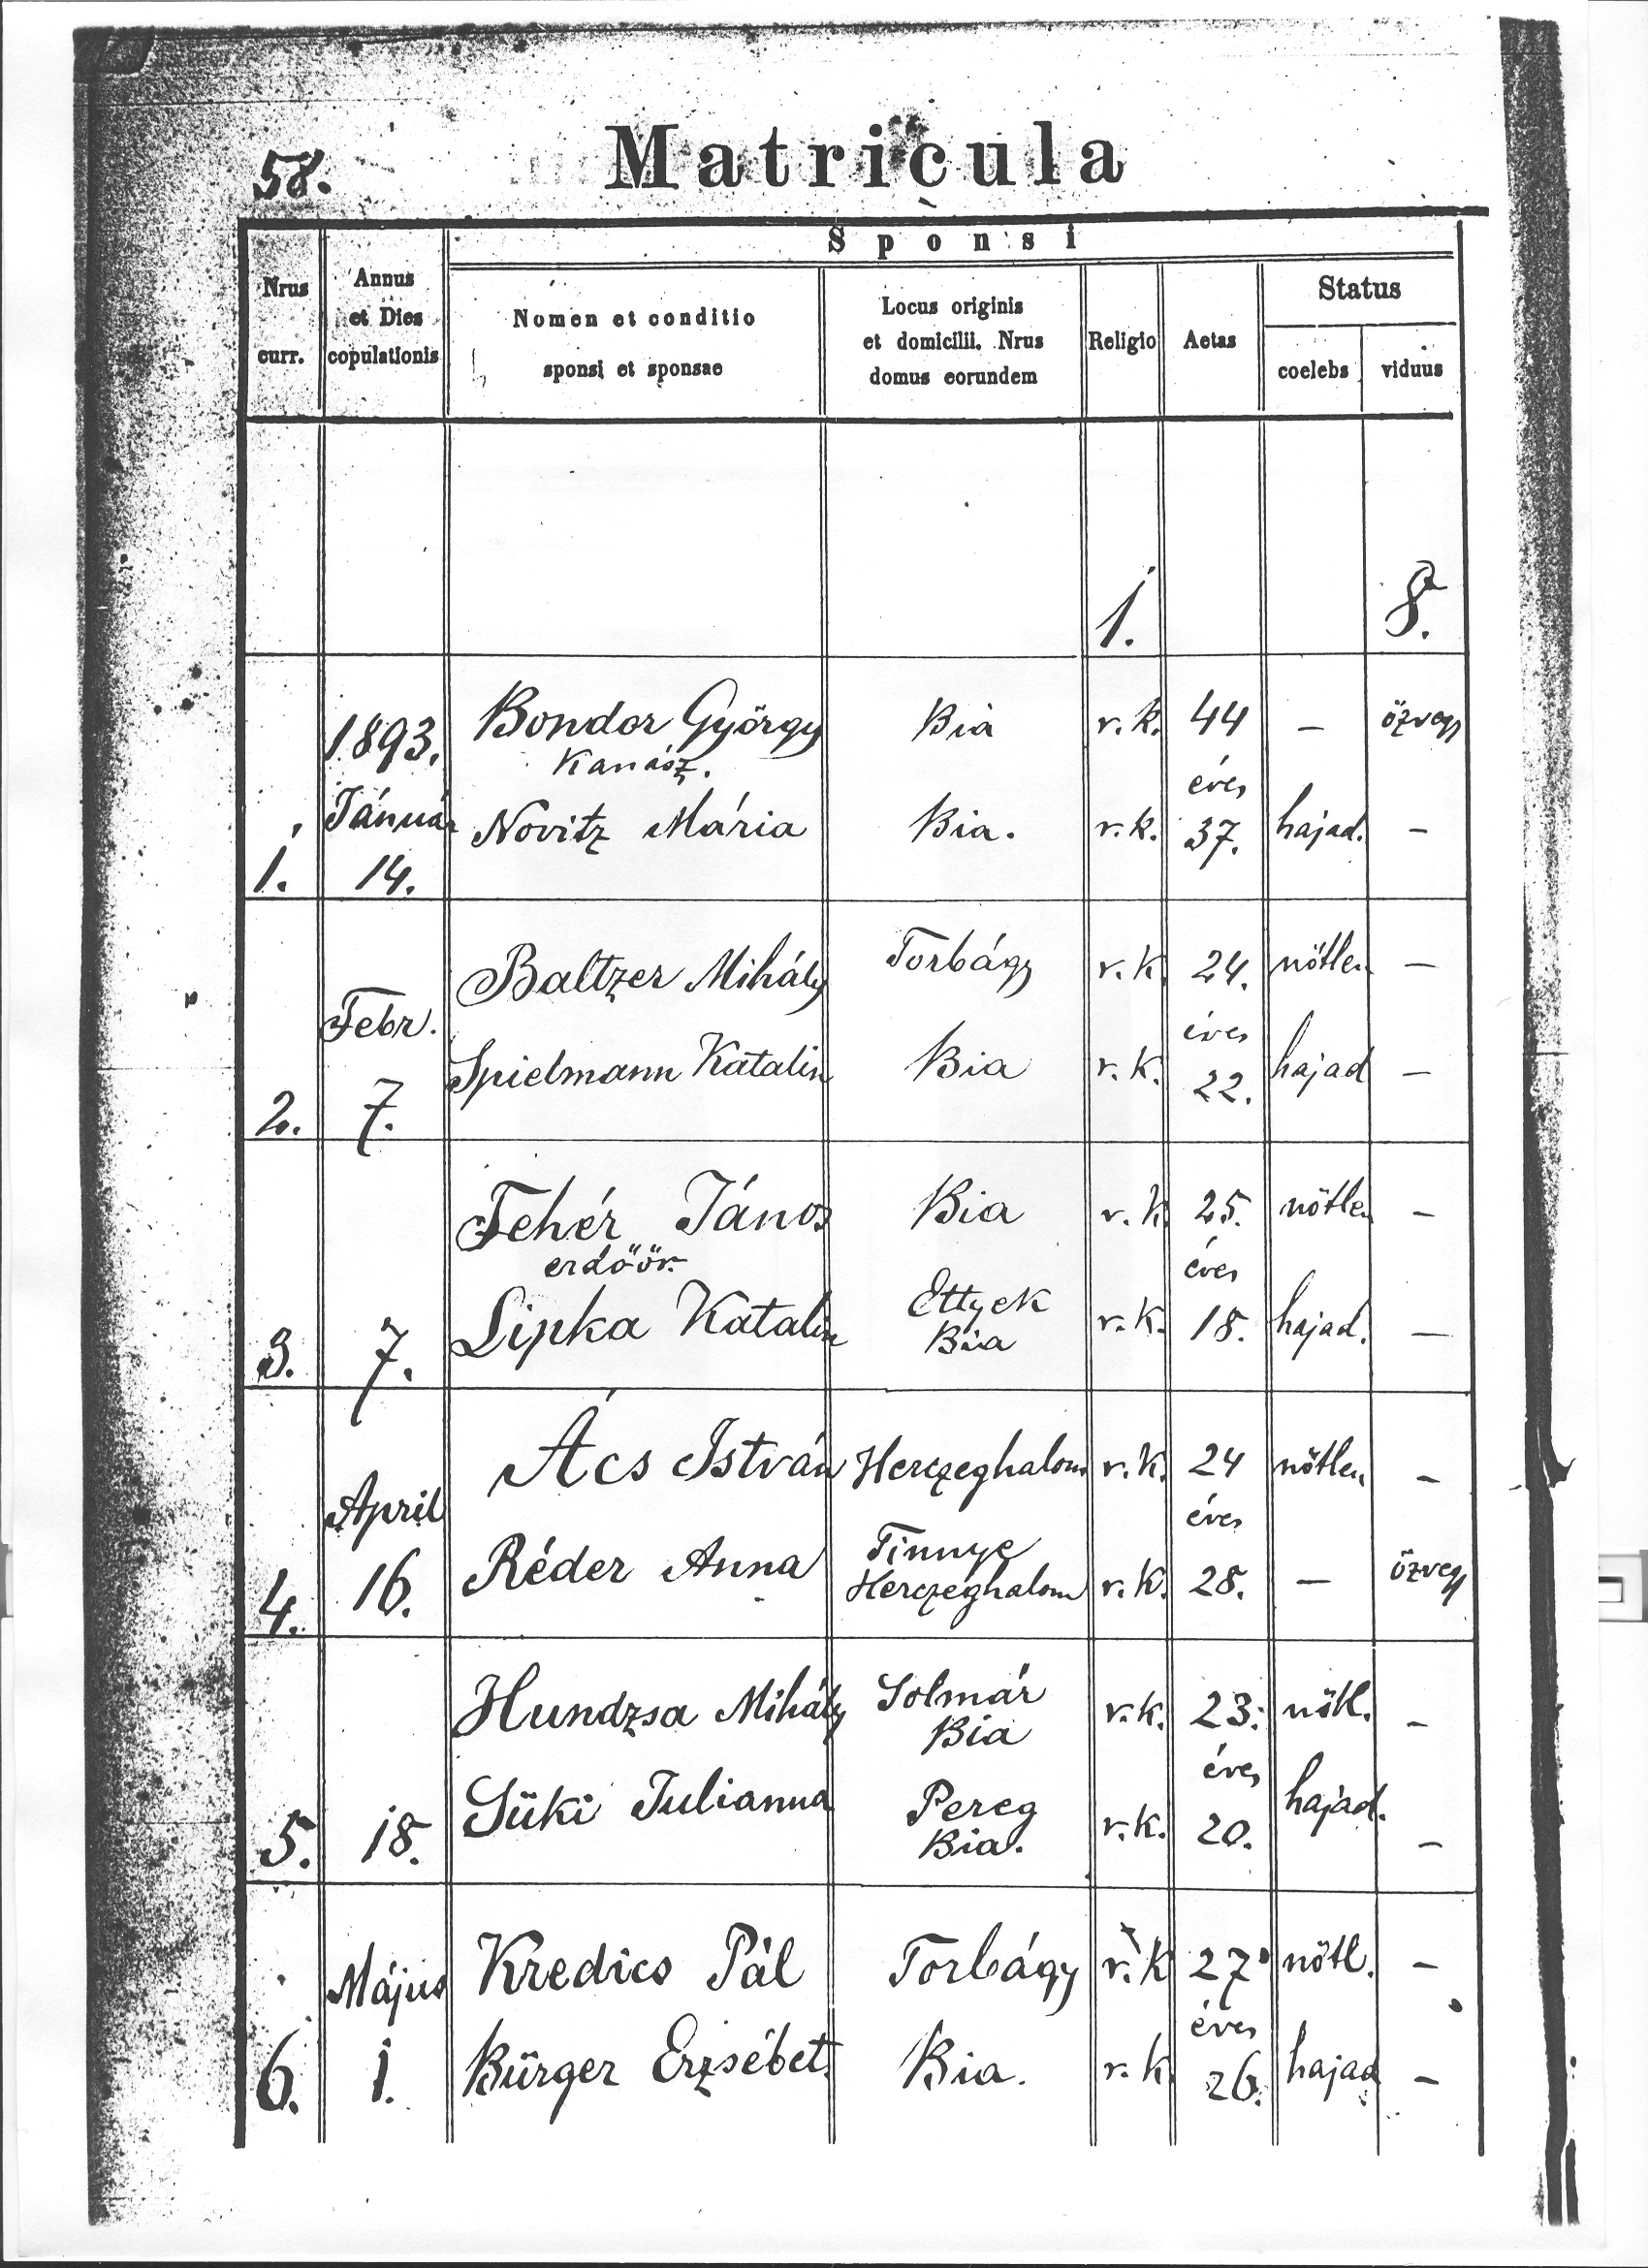 58.
Matricula
Sponsi
Nrus curr.
Annus et Dies copulationis
Nomen et conditio sponsi et sponsae
Locus originis et domicilii. Nrus domus eorundem
Religio
Aetas
Status
coelebs
viduus
1. 8.
1893. Bondor György Bia r. k. 44 – özvegy
Kanász. éves
Január Novitz Mária Bia. r. k. 37. hajad. –
1. 14.
Baltzer Mihály Torbágy r. k. 24. nötlen –
Febr. éves
Spielmann Katalin Bia r. k. 22. hajad –
2. 7.
Fehér János Bia r. k. 25. nötlen –
erdöőr. éves
Lipka Katalin Ettyek r. k. 18. hajad. –
3. 7. Bia
Ács István Herczeghalom r. k. 24 nötlen –
April éves
Réder Anna Tinnye
4. 16. Herczeghalom r. k. 28. – özvegy
Hundzsa Mihály Solmár r. k. 23. nötl. –
Bia
éves
Süki Julianna Pereg r. k. 20. hajad. –
5. 18. Bia.
Május Kredics Pál Torbágy r. k 27 nötl. –
éves
6. 1. Bürger Erzsébet Bia. r. k. 26. hajad –